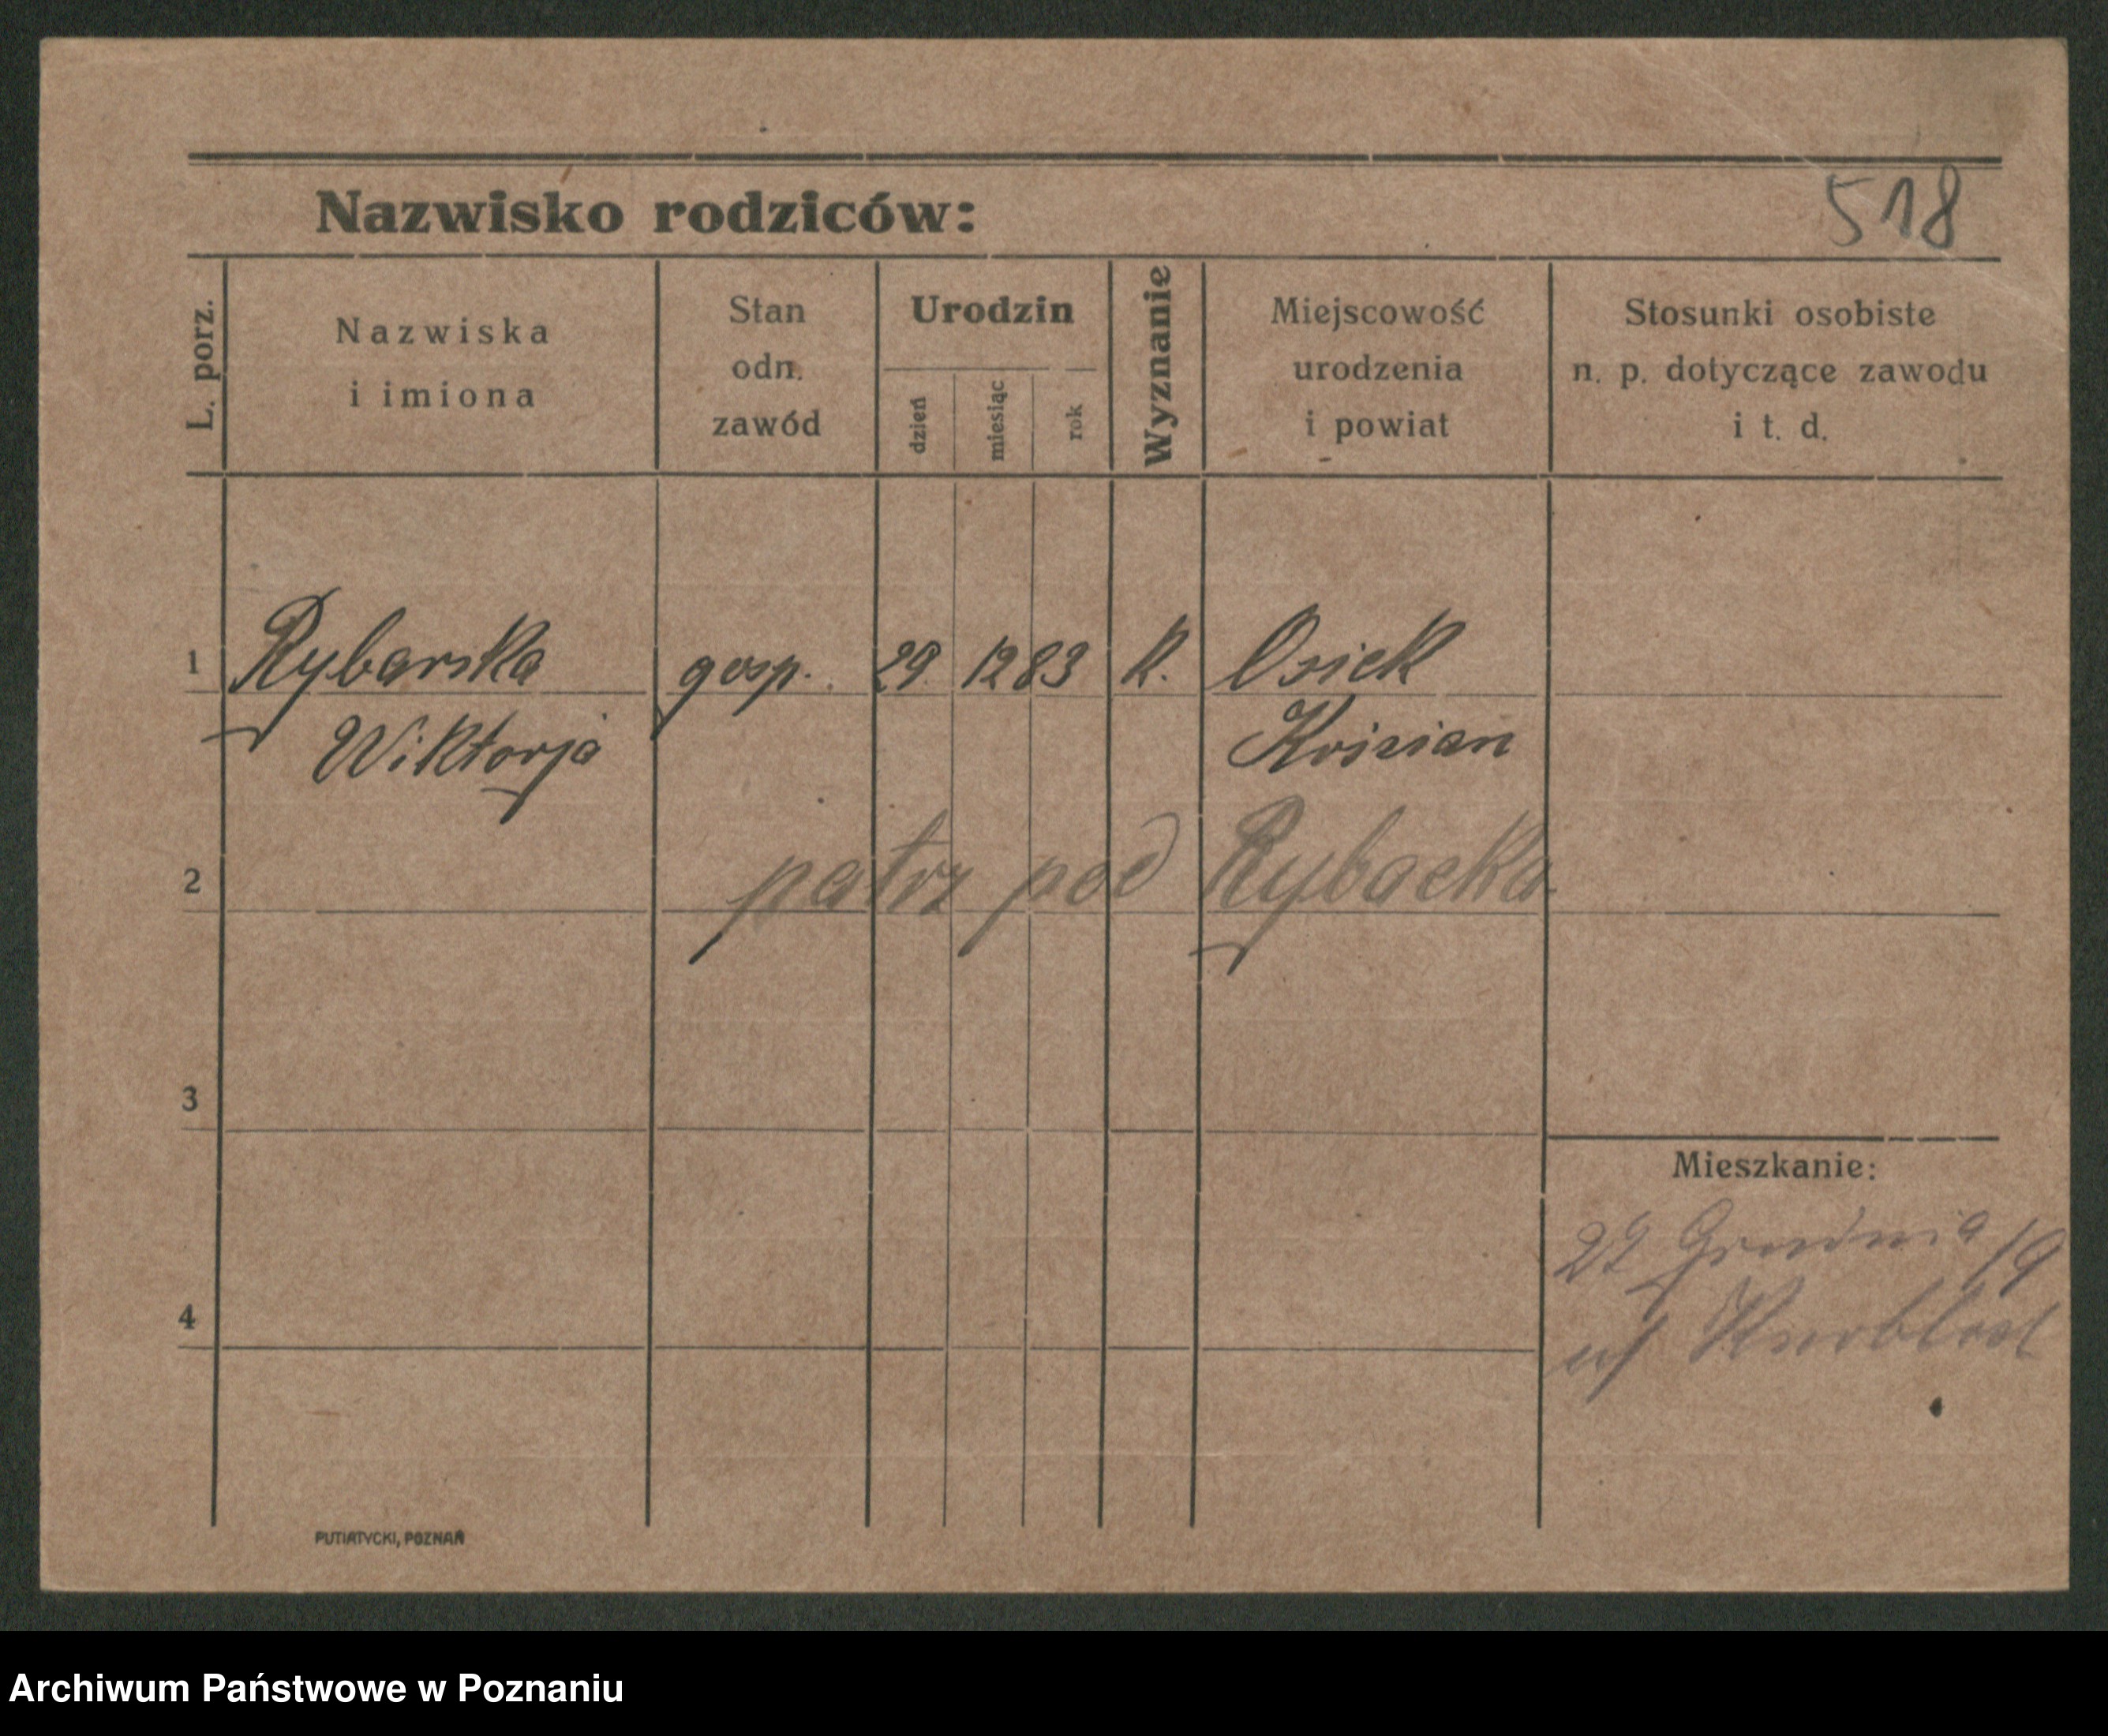 518
Nazwisko rodziców:
L. porz.
Nazwiska
i imiona
Stan
odn.
zawód
Urodzin
dzień
miesiąc
rok
Wyznanie
Miejscowość
urodzenia
i powiat
Stosunki osobiste
n. p. dotyczące zawodu
i t. d.
1 Rybarska gosp. 29. 12 83 K. Osiek
Wiktorja
2 patrz pod Rybacka
3
Mieszkanie:
27 Grudnia 19
4
PUTIATYCKI, POZNAŃ
Archiwum Państwowe w Poznaniu